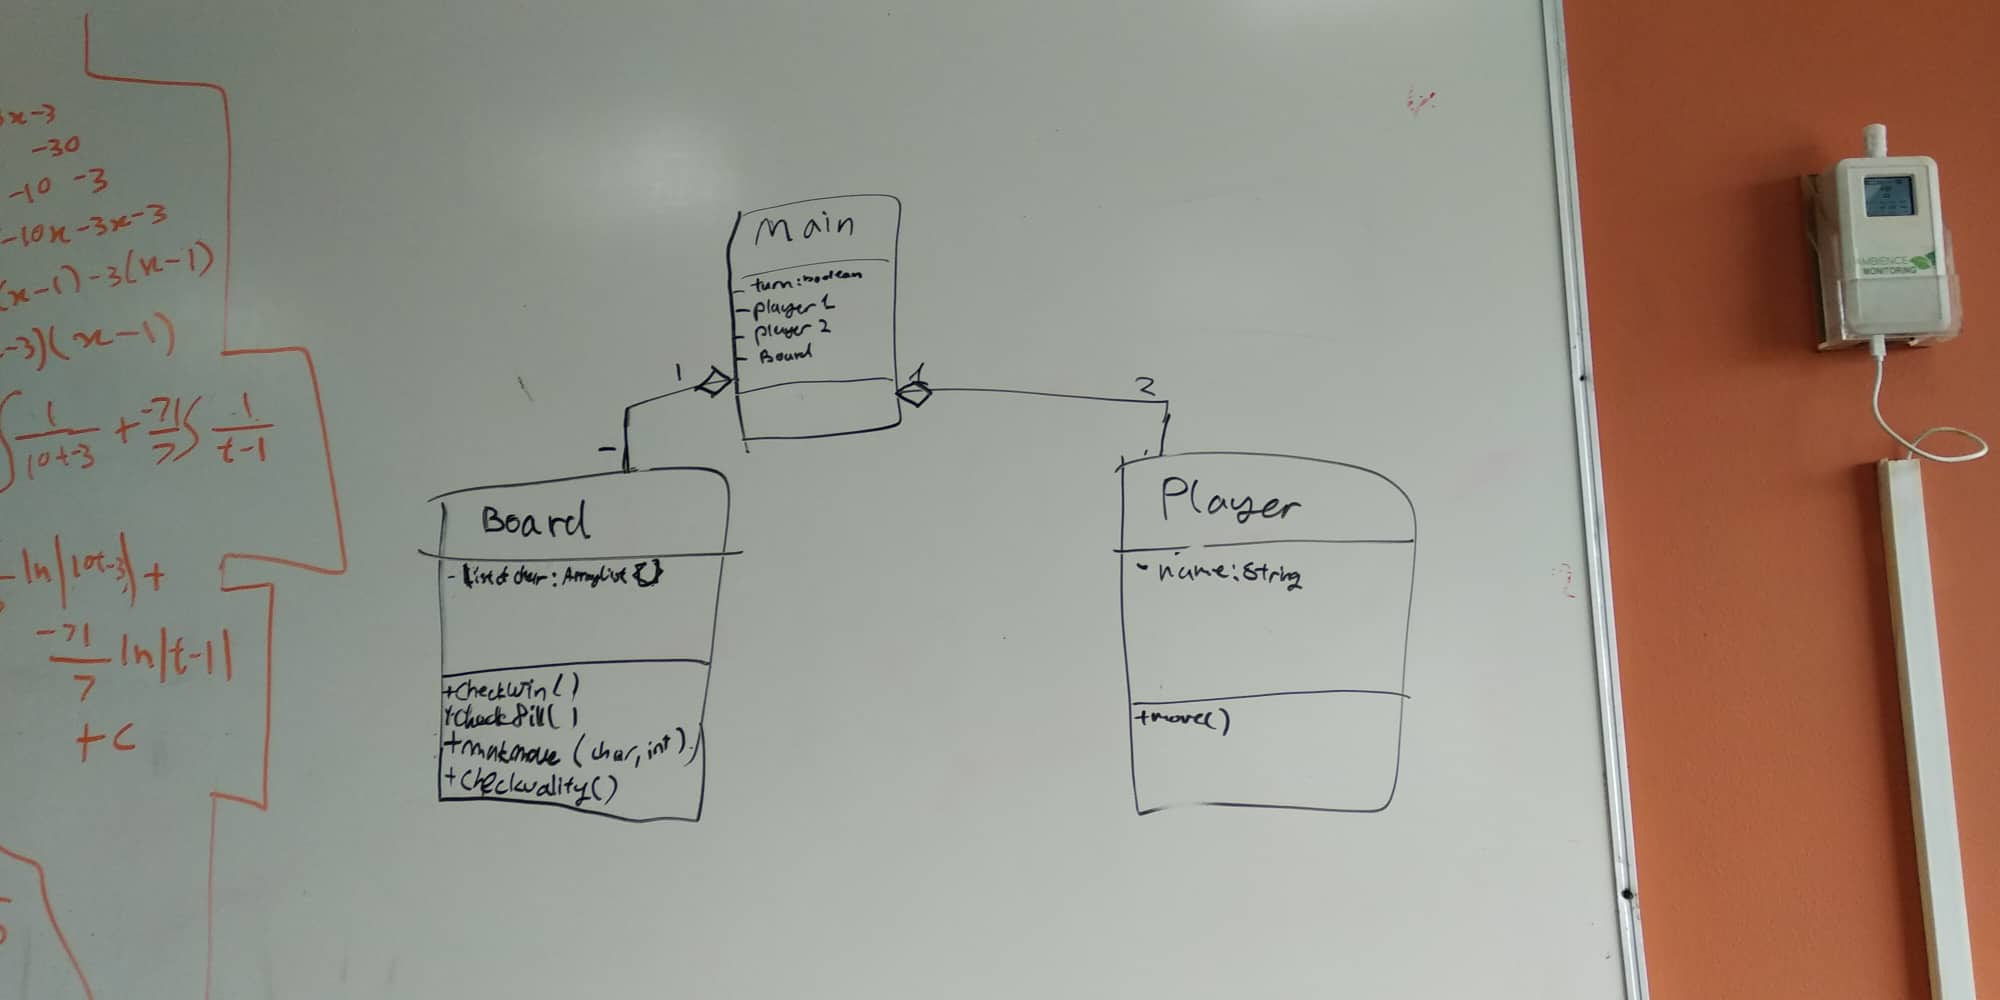 x-3
-30
-10 -3
-10x-3x-3
(x-1)-3(x-1)
-3)(x-1)
∫ 1/10t-3 + -71/7 ∫ 1/t-1
ln|10t-3| +
-71/7 ln|t-1|
+c
Main
- turn: boolean
- player 1
- player 2
- Board
1
1
2
-
Board
- List of char: ArrayList {}
+checkWin()
+checkfill()
+makemove (char, int)
+checkvality()
Player
- name: String
+move()
AMBIENCE
MONITORING